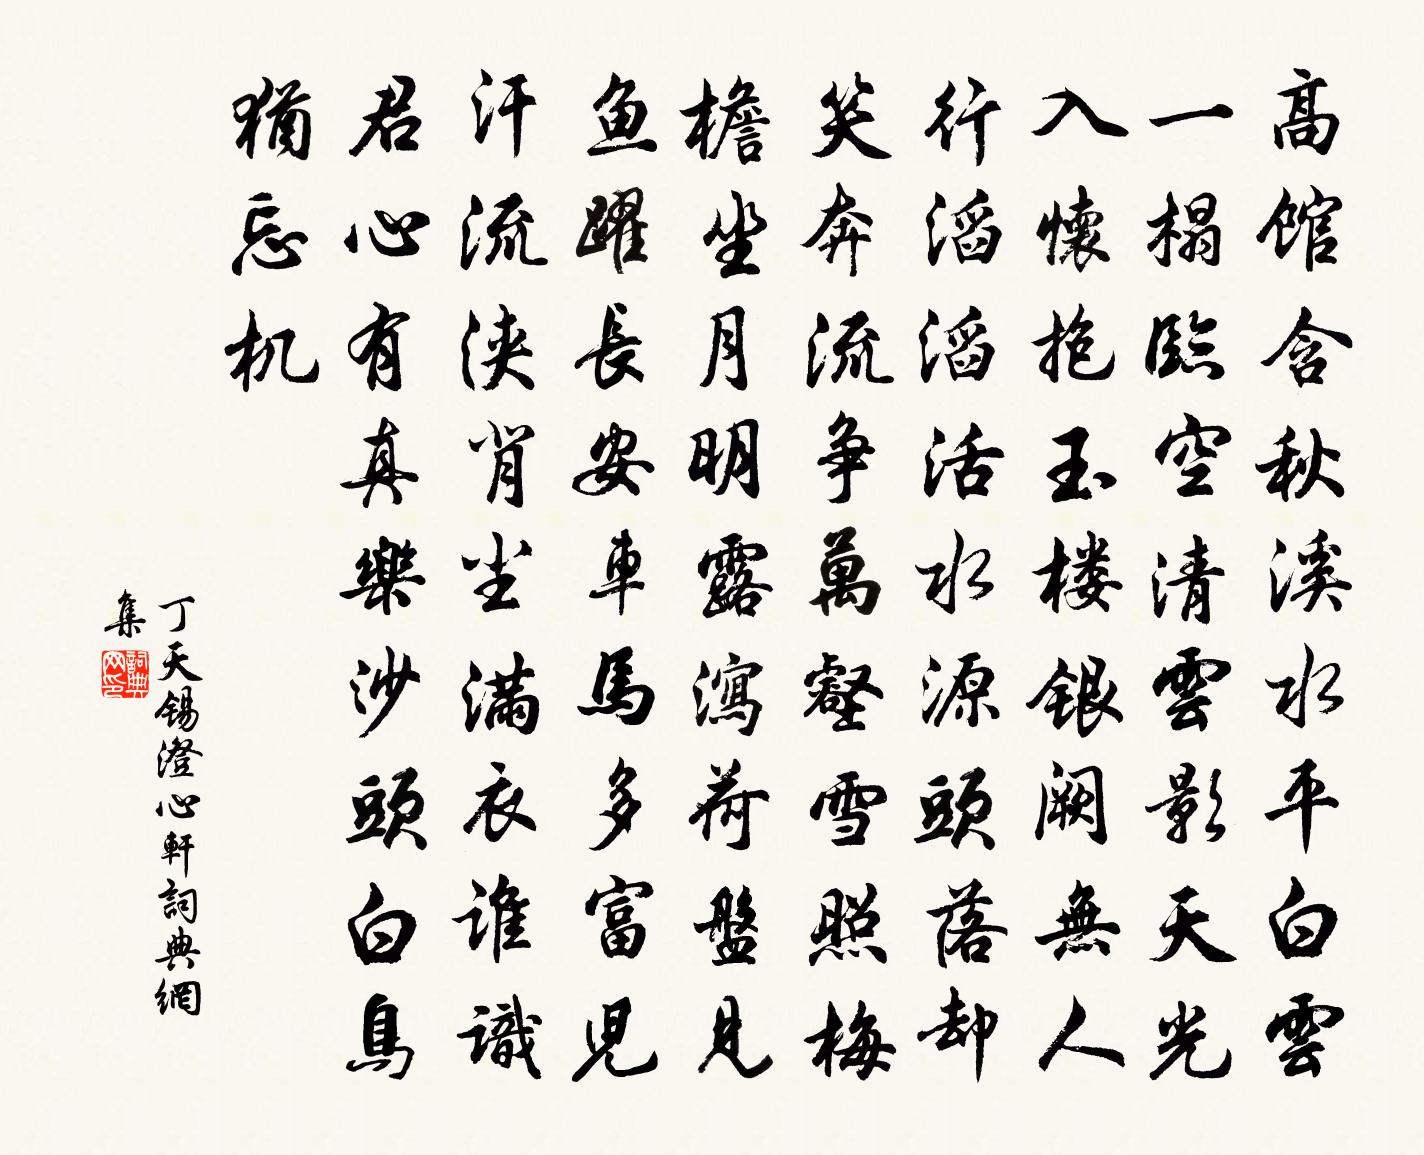 高館含秋溪水平白雲
一榻臨空清雲影天光
入懷抱玉楼銀阙無人
行滔滔活水源頭落却
笑奔流争萬壑雪照梅
檐坐月明露瀉荷盤見
鱼躍長安車馬多富児
汗流浹背尘满衣谁識
君心有真樂沙頭白鳥
猶忘机
丁天錫澄心軒詞典網
集
詞典网印